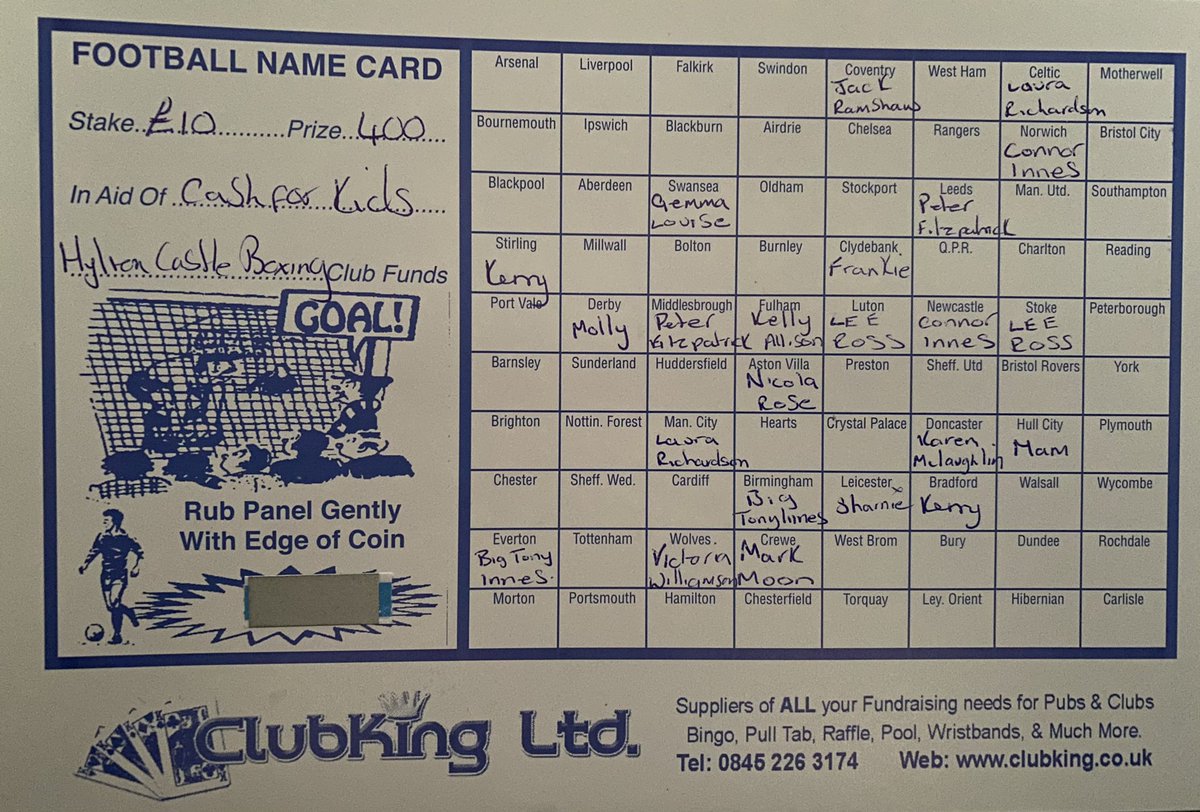 FOOTBALL NAME CARD
Stake..£10..........Prize..400....
In Aid Of..Cash for Kids.....
Hylton Castle Boxing Club Funds
GOAL!
Rub Panel Gently
With Edge of Coin
Arsenal Liverpool Falkirk Swindon Coventry West Ham Celtic Motherwell
Jack Laura
Ramshaw Richardson
Bournemouth Ipswich Blackburn Airdrie Chelsea Rangers Norwich Bristol City
Connor
Innes
Blackpool Aberdeen Swansea Oldham Stockport Leeds Man. Utd. Southampton
Gemma Peter
Louise Fitzpatrick
Stirling Millwall Bolton Burnley Clydebank Q.P.R. Charlton Reading
Kerry Frankie
Port Vale Derby Middlesbrough Fulham Luton Newcastle Stoke Peterborough
Molly Peter Kelly LEE Connor LEE
Fitzpatrick Allison ROSS Innes ROSS
Barnsley Sunderland Huddersfield Aston Villa Preston Sheff. Utd Bristol Rovers York
Nicola
Rose
Brighton Nottin. Forest Man. City Hearts Crystal Palace Doncaster Hull City Plymouth
Laura Karen Mam
Richardson Mclaughlin
Chester Sheff. Wed. Cardiff Birmingham Leicester Bradford Walsall Wycombe
Big Sharnie Kerry
Tony Innes
Everton Tottenham Wolves. Crewe West Brom Bury Dundee Rochdale
Big Tony Victoria Mark
Innes. Williamson Moon
Morton Portsmouth Hamilton Chesterfield Torquay Ley. Orient Hibernian Carlisle
ClubKing Ltd.
Suppliers of ALL your Fundraising needs for Pubs & Clubs
Bingo, Pull Tab, Raffle, Pool, Wristbands, & Much More.
Tel: 0845 226 3174 Web: www.clubking.co.uk